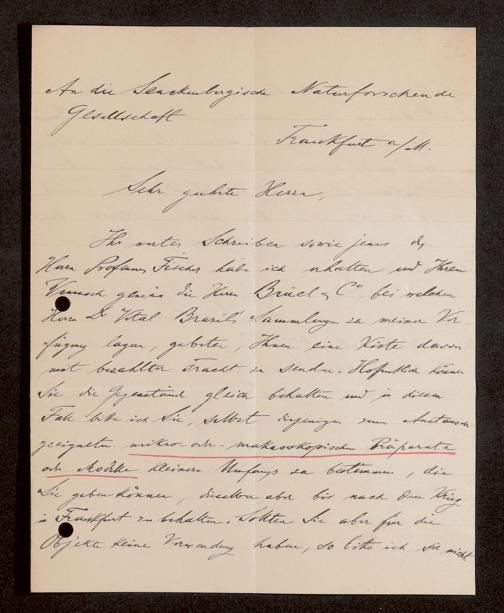 An die Senckenbergische Naturforschende
Gesellschaft
Frankfurt a/M.
Sehr geehrte Herrn,
Ihr wertes Schreiben sowie jenes des
Herrn Professors Fischer habe ich erhalten und Ihrem
Wunsch gemäss die Herrn Brück & Co, bei welchen
Herrn Dr Vital Brazil's Sammlungen zu meiner Ver-
fügung lagen, gebeten, Ihnen eine Kiste davon
mit bezahlter Fracht zu senden. Hoffentlich können
Sie die Gegenstände gleich behalten und in diesem
Falle bitte ich Sie, selbst diejenigen zum Austausch
geeigneten mikro- oder makroskopischen Präparate
oder Modelle kleineren Umfangs zu bestimmen, die
Sie geben können, dieselben aber bis nach dem Krieg
in Frankfurt zu behalten. Sollten Sie aber für die
Objekte keine Verwendung haben, so bitte ich sie nicht